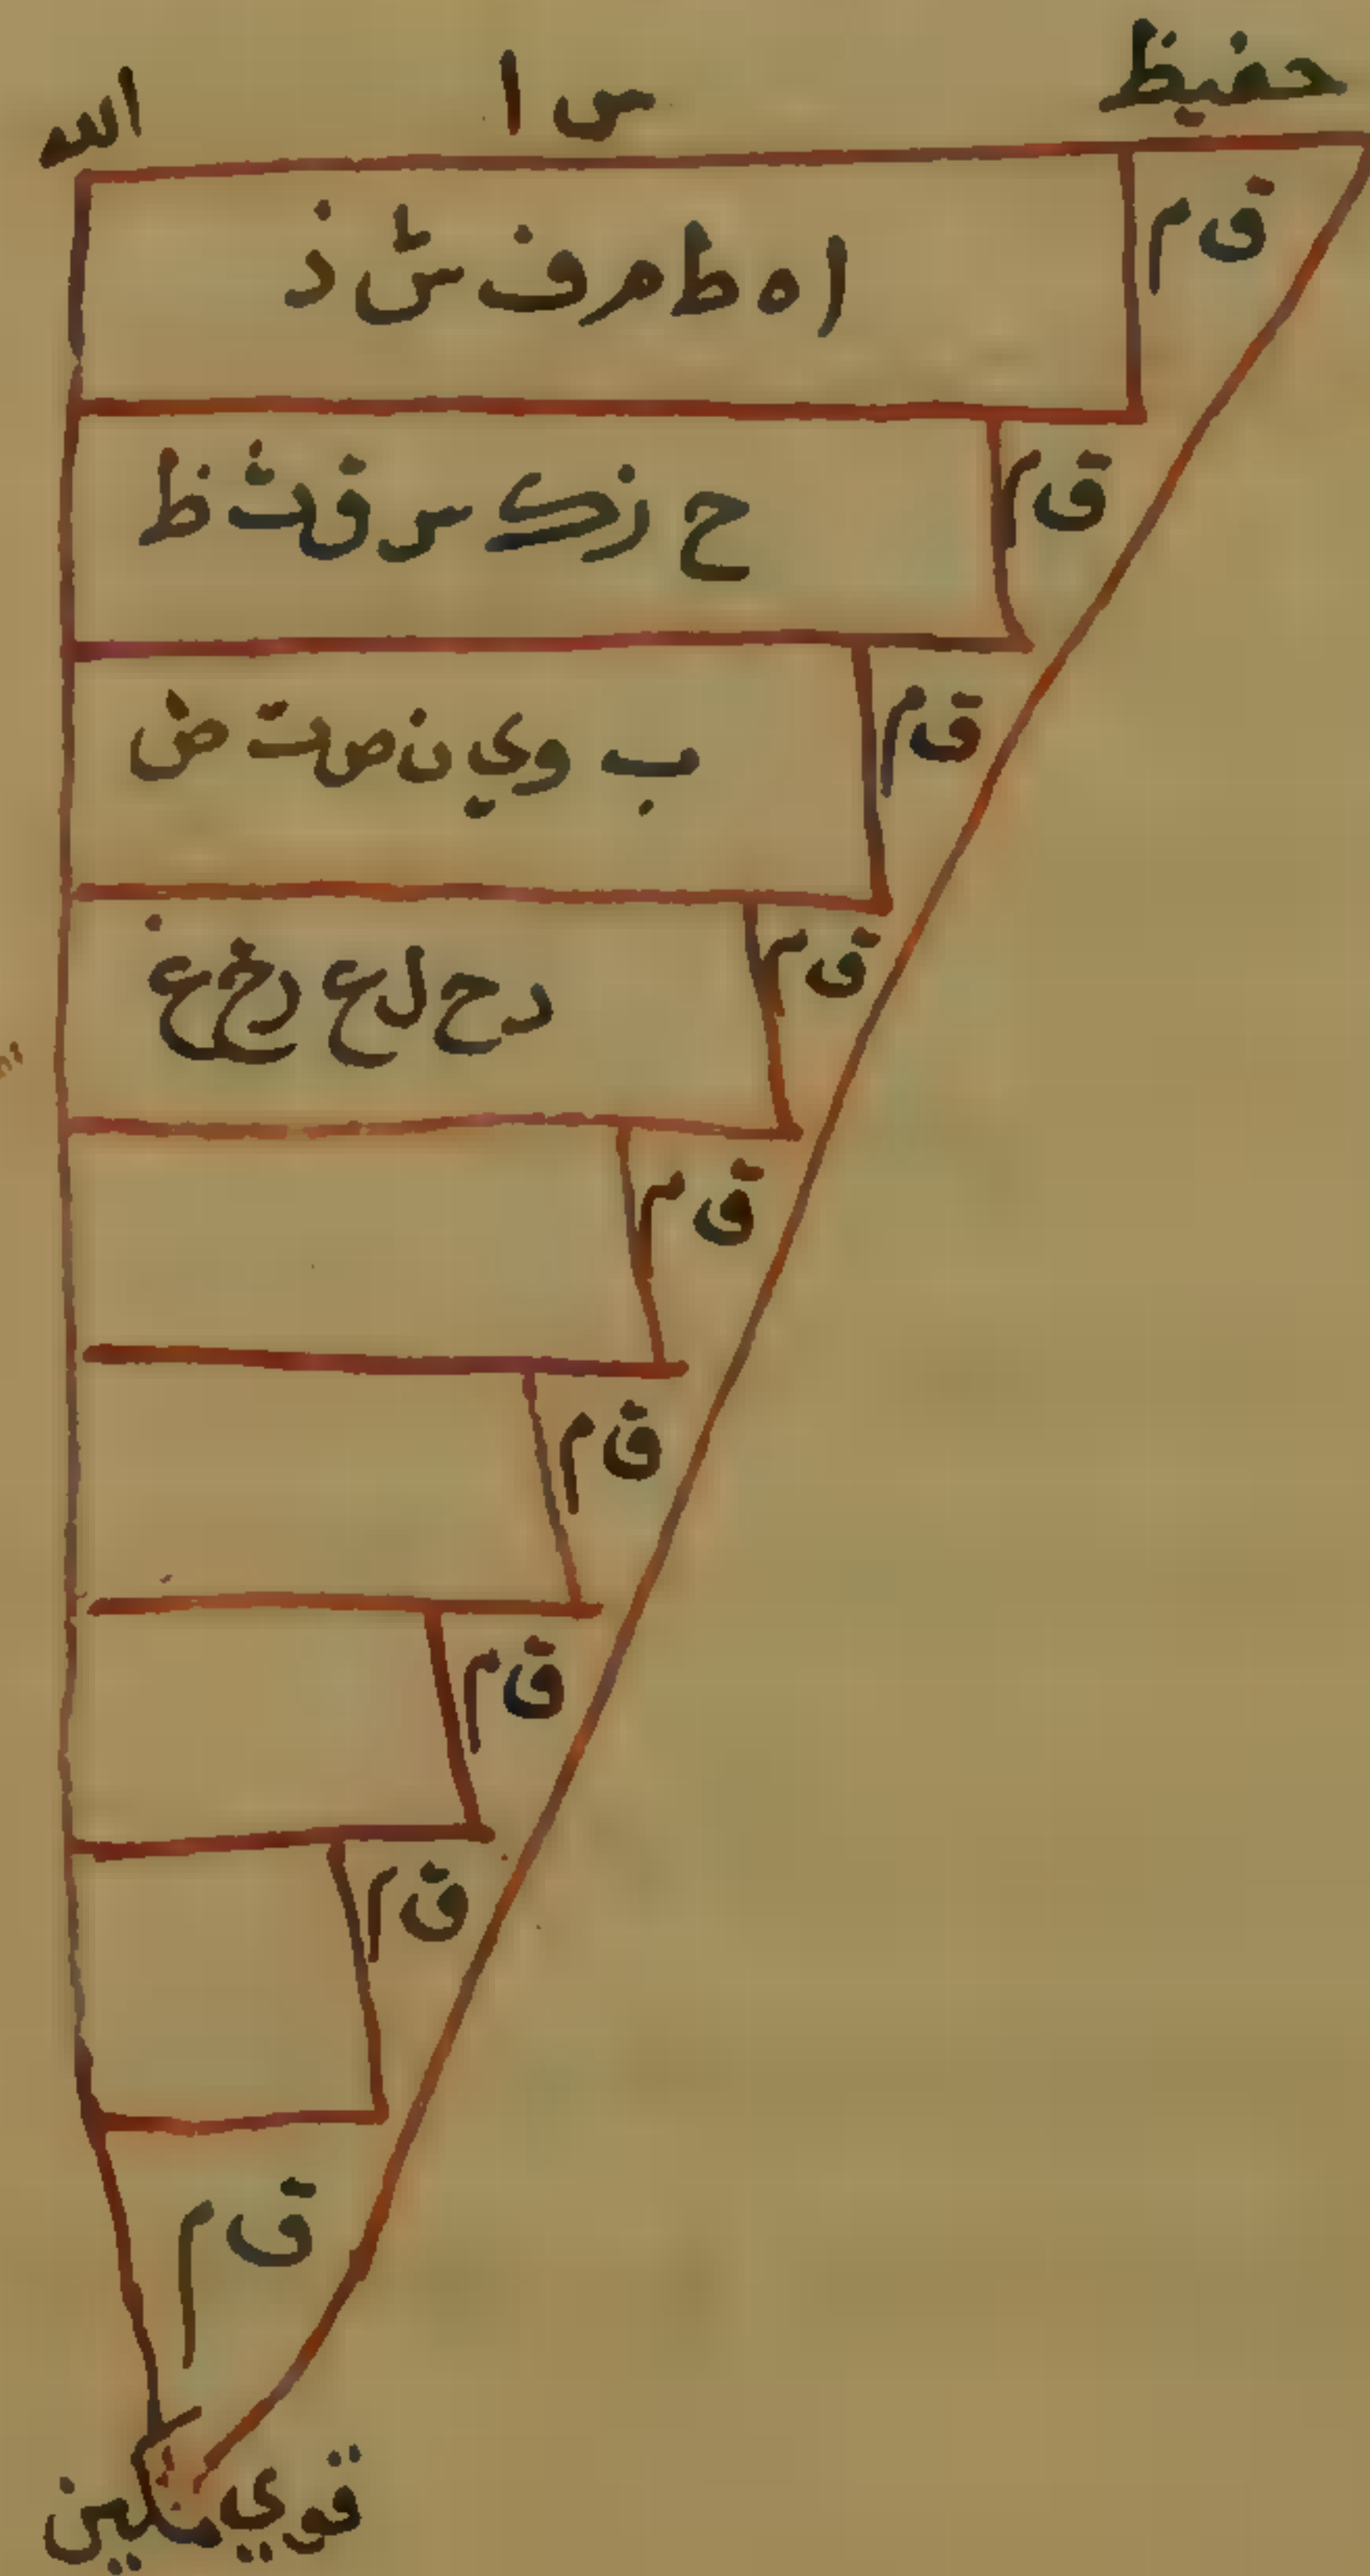 حفيظ س ا الله
ق م
ا ه ط م ف ش ذ
ق م
ح ز ك س ق ث ظ
ق م
ب و ي ن ص ت ض
ق م
د ح ل ع ر خ غ
ق م
ق م
ق م
ق م
ق م
قوي متين